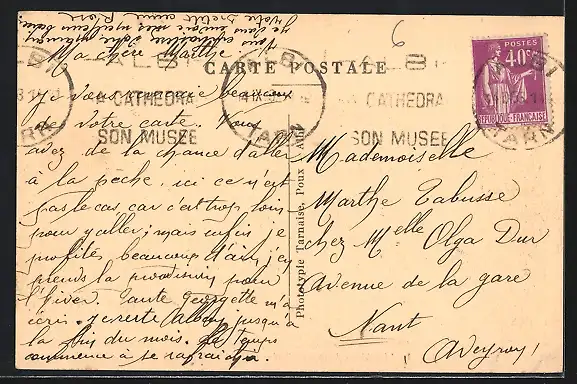 Ma chère Marthe.
Je vous remercie beaucoup
de votre carte. Vous
avez de la chance d'aller
à la pêche, ici ce n'est
pas le cas car c'est trop loin
pour y aller; mais enfin je
profite beaucoup d'air j'en
prends la provision pour
l'hiver. Tante Georgette m'a
écrit. Je reste Albi jusqu'à
la fin du mois. Le temps
commence à se rafraichir.
CARTE POSTALE
ALBI
TARN
LA CATHEDRA
SON MUSEE
ALBI
TARN
CATHEDRA
SON MUSEE
POSTES
40c
REPUBLIQUE FRANÇAISE
ALBI
TARN
Phototypie Tarnaise, Poux Albi
Mademoiselle
Marthe Tabusse
chez Melle Olga Dur
Avenue de la gare
Nant
Aveyron